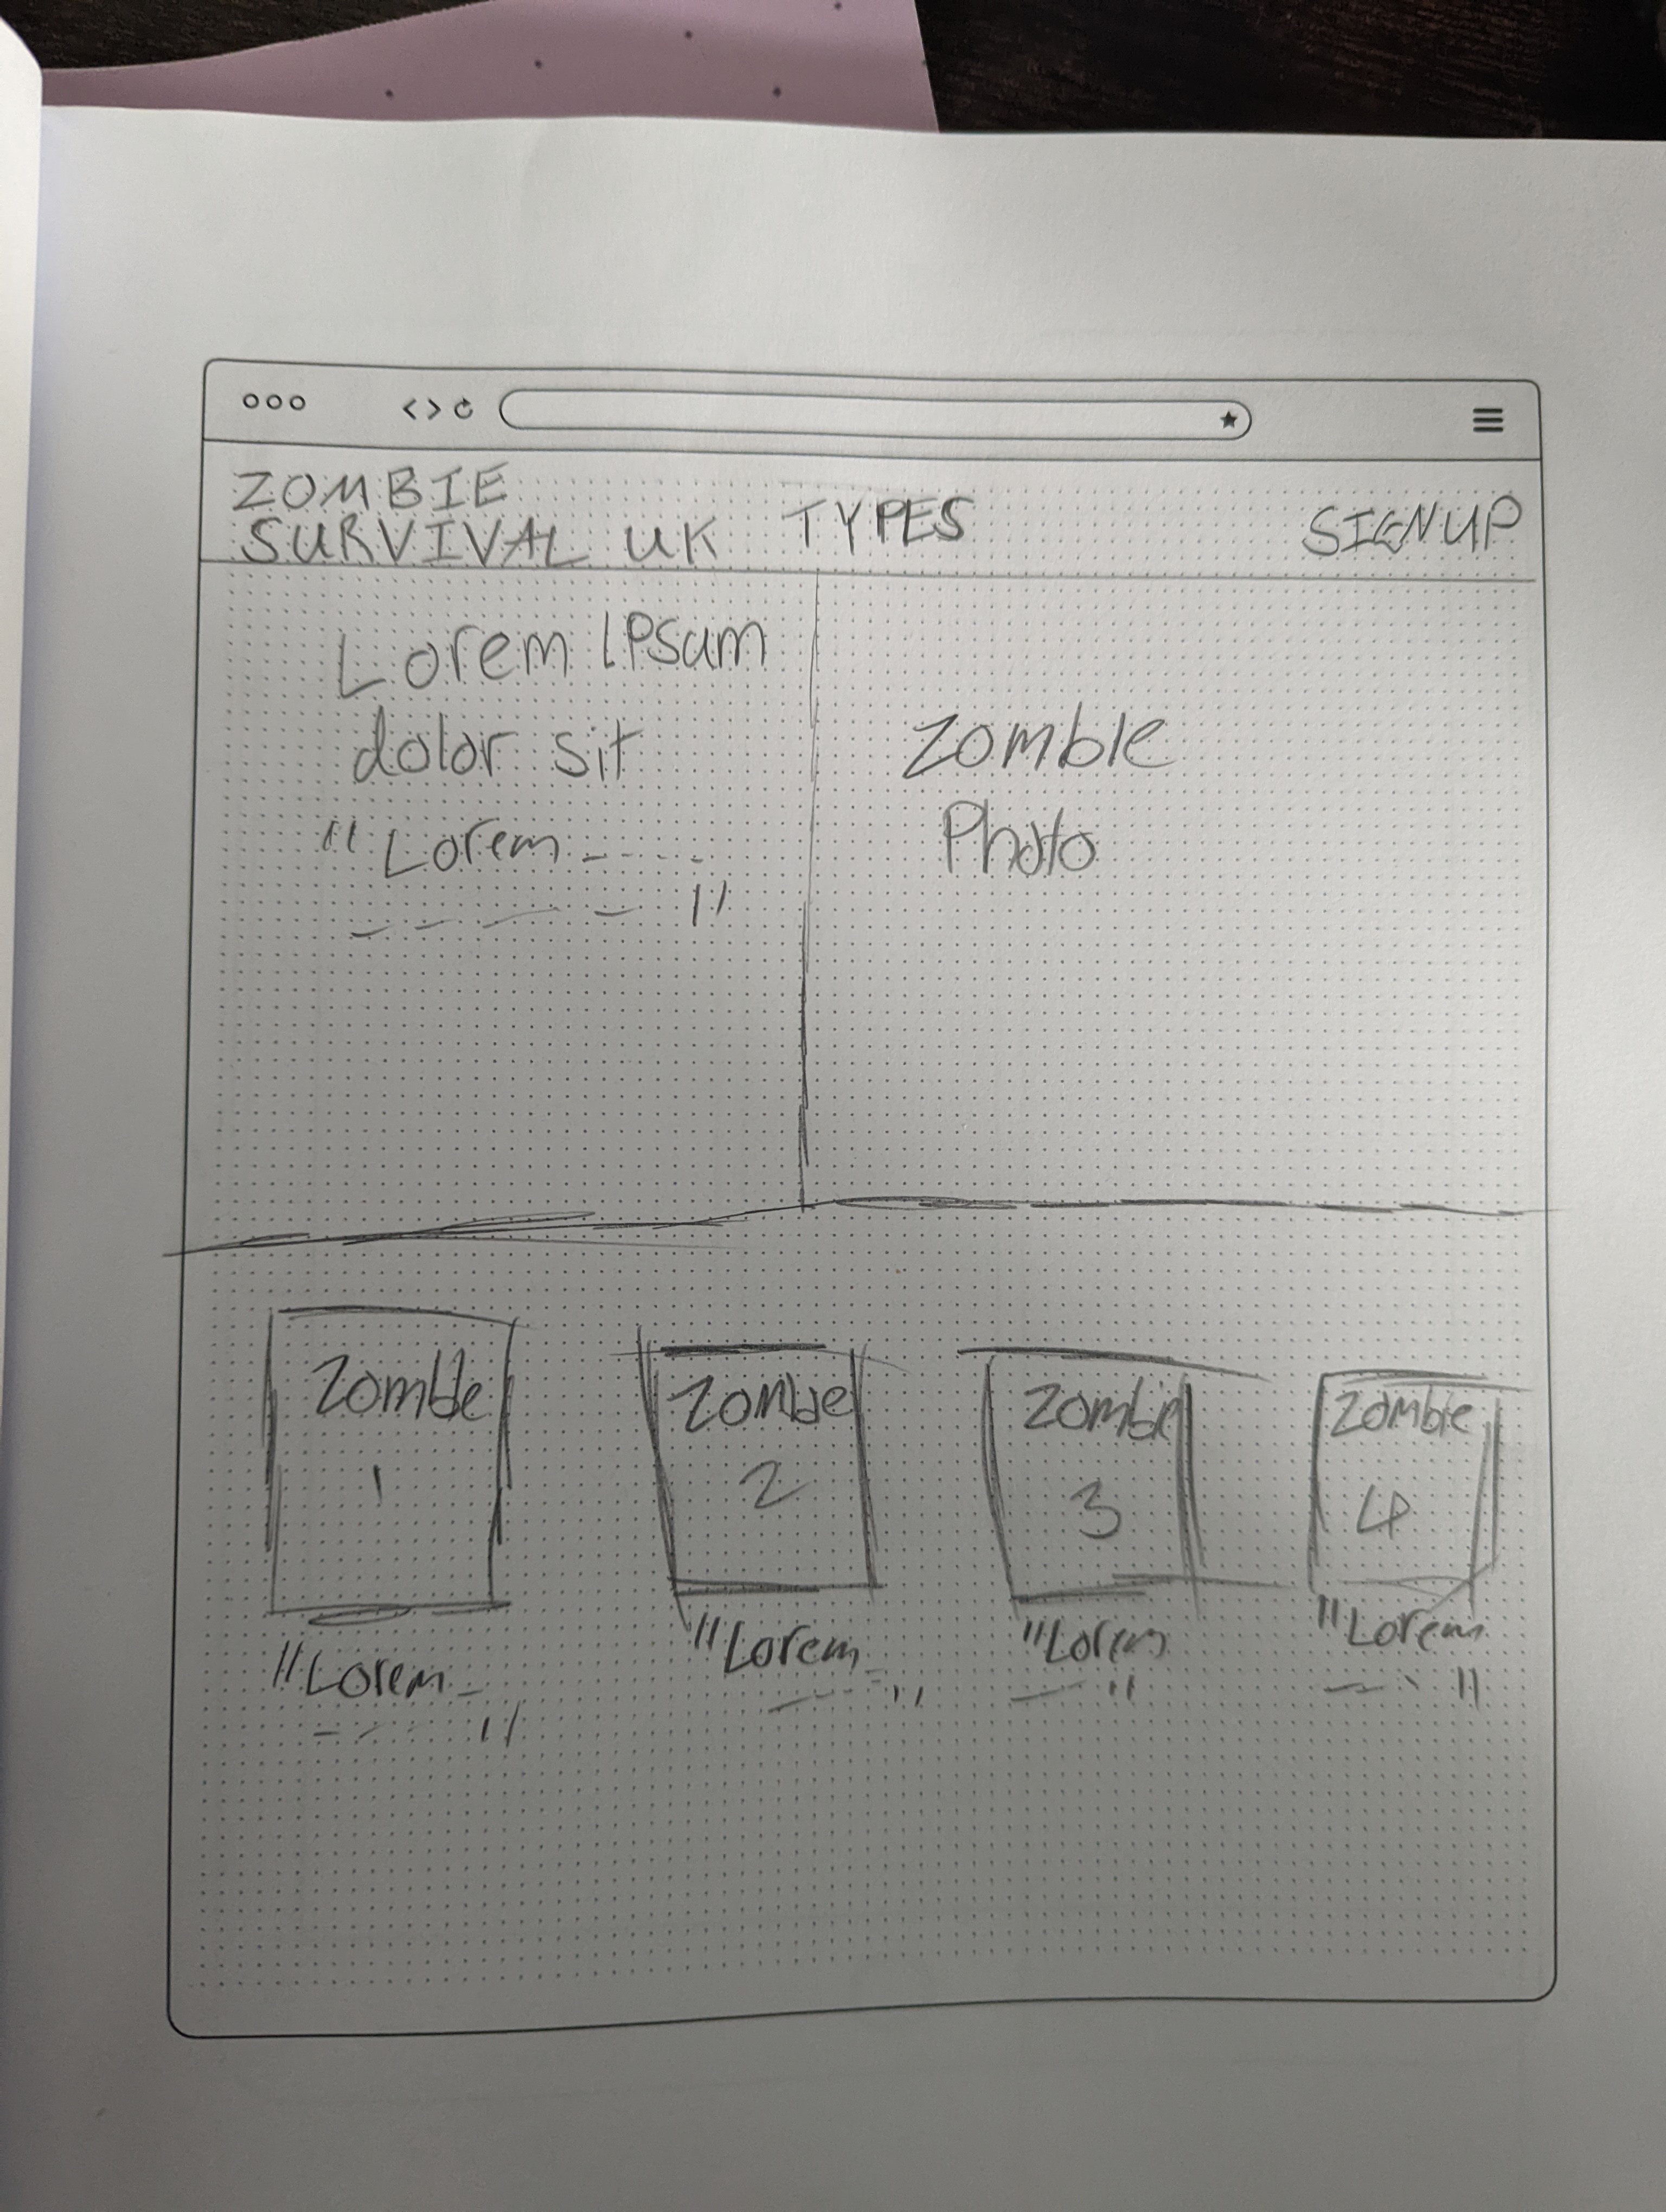 ZOMBIE
SURVIVAL UK TYPES SIGNUP
Lorem Ipsum
dolor sit
"Lorem -----
----- "
Zombie
Photo
Zombie
1
Zombie
2
Zombie
3
Zombie
4
"Lorem -
---- "
"Lorem --
--- "
"Lorem
--- "
"Lorem
--- "